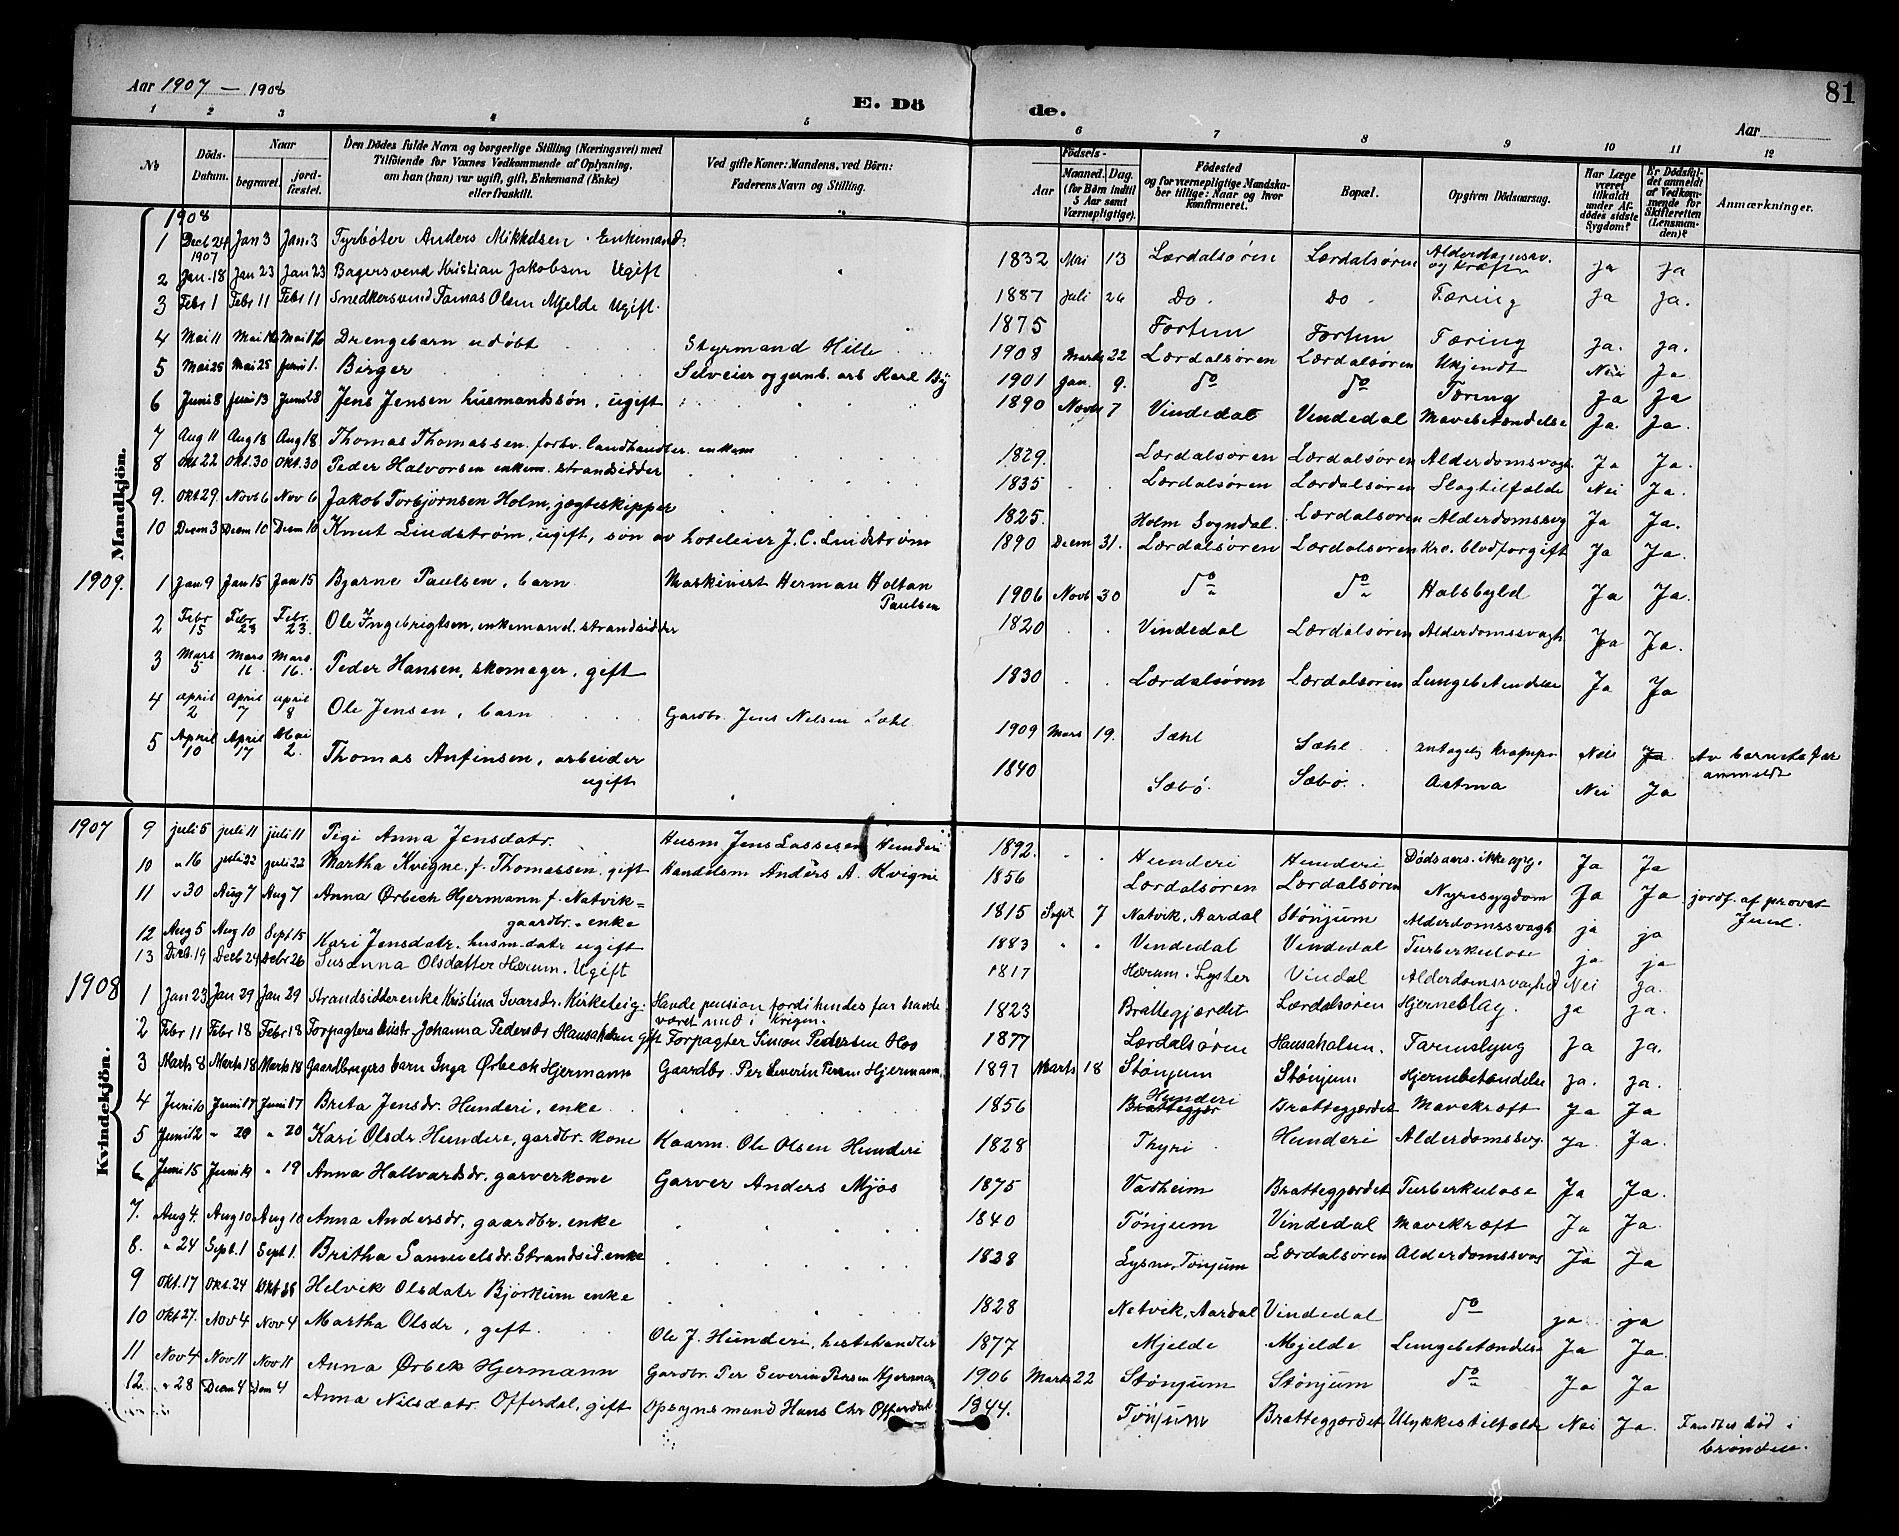 Aar 1907 — 1908
E. Dö
de.
81
Aar
1 2 3 4 5 6 7 8 9 10 11 12
No
Döds-Datum.
Naar
begravet.
jord-fæstet.
Den Dödes fulde Navn og borgerlige Stilling (Næringsvei) med
Tilföiende for Voxnes Vedkommende af Oplysning,
om han (hun) var ugift, gift, Enkemand (Enke)
eller fraskilt.
Ved gifte Koner: Mandens, ved Börn:
Faderens Navn og Stilling.
Födsels-
Aar
Maaned. Dag.
(for Börn indtil
5 Aar samt
Værnepligtige).
Födested
og for værnepligtige Mandska-
ber tillige: Naar og hvor
konfirmeret.
Bopæl.
Opgiven Dödsaarsag.
Har Læge
været
tilkaldt
under Af-
dödes sidste
Sygdom?
Er Dödsfal-
det anmeldt
af Vedkom-
mende for
Skifteretten
(Lensman-
den)?
Anmærkninger.
Mandkjön.
1908
1 Decb 24 1907 Jan 3 Jan 3 Fyrbøter Anders Mikkelsen. Enkemand 1832 Mai 13 Lærdalsøren Lærdalsøren og kræft ja ja
2 Jan. 18 Jan 23 Jan 23 Bagersvend Kristian Jakobsen Ugift 1887 Juli 26 Do. Do. Tæring Ja Ja.
3 Febr 1 Febr 11 Febr 11 Snedkersvend Tomas Olsen Mjelde Ugift. 1875 Fortun Fortun Tæring ja. ja.
4 Mai 11 Mai 16 Mai 16 Drengebarn udøbt Styrmand Hille 1908 Marts 22 Lærdalsøren Lærdalsøren Ukjendt Nei Ja
5 Mai 25 Mai 25 Juni 1. Birger Selveier og gernb. arb Karl By 1901 Jan. 9. do do Tæring Ja Ja
6 Juni 8 Juni 13 Juni 28 Jens Jensen husmandssøn, ugift 1890 Novb 7 Vindedal Vindedal Mavebetændelse Ja. Ja.
7 Aug 11 Aug 18 Aug 18 Thomas Thomassen forhv. landhandler. enkem 1829. Lærdalsøren Lærdalsøren Alderdomsvagh. Ja Ja.
8 Okt 22 Okt. 30 Okt. 30 Peder Halvorsen enkem. strandsidder 1835 Lærdalsøren Lærdalsøren Slagtilfælde Nei Ja.
9. Okt 29 Nov 6 Nov 6 Jakob Torbjørnsen Holm, jægteskipper 1825. Holm Sogndal. Lærdalsøren Alderdomssvg Ja Ja.
10 Decm 3 Decm 10 Decm 10 Knut Lindstrøm, ugift, søn av hoteleier J. C. Lindstrøm 1890 Decm 31. Lærdalsøren Lærdalsøren kro. blodforgift Ja Ja.
1909.
1 Jan 9 Jan 15 Jan 15 Bjarne Paulsen, barn Maskinist Herman Holtan Paulsen 1906 Novb 30 do do Halsbyld Ja Ja.
2 Febr 15 Febr 23 Febr 23. Ole Ingebrigtsen, enkemand. strandsidder 1820 Vindedal Lærdalsøren Alderdomssvagh Ja Ja.
3 Mars 5 Mars 16 Mars 16. Peder Hansen, skomager, gift 1830 Lærdalsøren Lærdalsøren Lungebetændelse Ja Ja
4 april 2 april 7 april 8 Ole Jensen, barn Gardbr. Jens Nelsen Sæhl. 1909 Mars 19. Sæhl Sæhl. antagelig krampe Nei Ja Av barnets far anmeldt
5 April 10 April 17 Mai 2. Thomas Anfinsen, arbeider ugift 1840 Sæbø Sæbø. Astma Nei Ja
Kvindekjön.
1907
9 juli 5 juli 11 juli 11 Pigi Anna Jensdatr. Husm Jens Lassesen Hunderi 1892. Hunderi Hunderi Dødsaars. ikke opg. Ja Ja
10 " 16 juli 22 juli 22 Martha Kvigne f. Thomassen. gift Handelsm Anders A. Kvigne 1856 Lærdalsøren Lærdalsøren Nyresygdom Ja Ja jordf. af provst Juul.
11 " 30 Aug 7 Aug 7 Anna Ørbech Hjermann f. Natvik = gaardbr.- enke 1815 Sept 7 Natvik, Aardal Stønjum Alderdomssvagh ja ja
12 Aug 5 Aug 10 Sept 15 Kari Jensdatr. husm. datr ugift 1883 Vindedal Vindedal Turberkulose ja ja
13 Decb. 19 Decb 24 Decbr 26 Susanna Olsdatter Hærum. Ugift 1817 Hærum. Lyster Vindal Alderdomssvaghed Nei Ja.
1908
1 Jan 23 Jan 29 Jan 29 Strandsidderenke Kristina Ivarsdr. Kirketeig. Havde pension fordi hendes far havde været med i krigen. 1823 Brattegjærdet Lærdalsøren Hjerneslag. ja ja.
2 Febr 11 Febr 18 Febr 18 Forpagters hustr. Johanna Pedersdr Hansahalsen gift Forpagter Simon Pedersen Hoo 1877 Lærdalsøren Hansahalsen. Tarmslyng Ja Ja.
3 Marts 8 Marts 18 Marts 18 Gaardbrugers barn Inga Ørbech Hjermann Gaardbr. Per Severin Persen Hjermann, 1897 Marts 18 Stønjum Stønjum Hjernebetændelse ja. ja.
4 Juni 10 Juni 17 Juni 17 Breta Jensdr. Hunderi, enke 1856 Hunderi Brattegjær Brattegjærdet Mavekræft Ja Ja
5 Juni 12 " 20 " 20 Kari Olsdr. Hundere, gardbr. kone Kaarm. Ole Olsen Hunderi 1828 Thyri Hunderi Alderdomssvg. Ja. Ja.
6 Juni 15 Juni 19 " 19 Anna Hallvardsdr. garverkone Garver Anders Mjøs 1875 Vadheim Brattegjærdet Turberkulose Ja Ja.
7. Aug 4. Aug 10 Aug 10 Anna Andersdr, gaardbr. enke 1840 Tønjum Vindedal Mavekræft Ja Ja.
8. " 24 Sept. 1 Sept 1. Britha Samuelsdr. Strandsid. enke 1828 Lysne, Tønjum Lærdalsøren Alderdomssvag Ja Ja
9 Okt. 17 Okt. 24 Okt Helvik Olsdatr Bjørkum enke 1828 Natvik, Aardal Vindedal do ja ja
10 Okt 27. Nov 4 Nov 4 Martha Olsdr, gift. Ole J. Hunderi, hestehandler 1877 Mjelde Mjelde Lungebetændelse Ja Ja.
11 Nov 4 Nov 11 Nov 11 Anna Ørbek Hjermann Gardbr. Per Severin Persen Hjermann 1906 Marts 22 Stønjum Stønjum do Ja Ja
12. " 28 Decm 4 Decm 4 Anna Nilsdatr. Offerdal, gift Opsynsmand Hans Chr Offerdal 1844. Tønjum Brattegjærdet Ulykkestilfælde Nei Ja. Fandtes død i brønden.